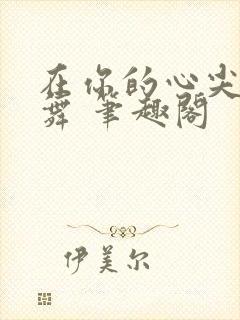 在你的心尖
舞 笔趣阁
伊美尔